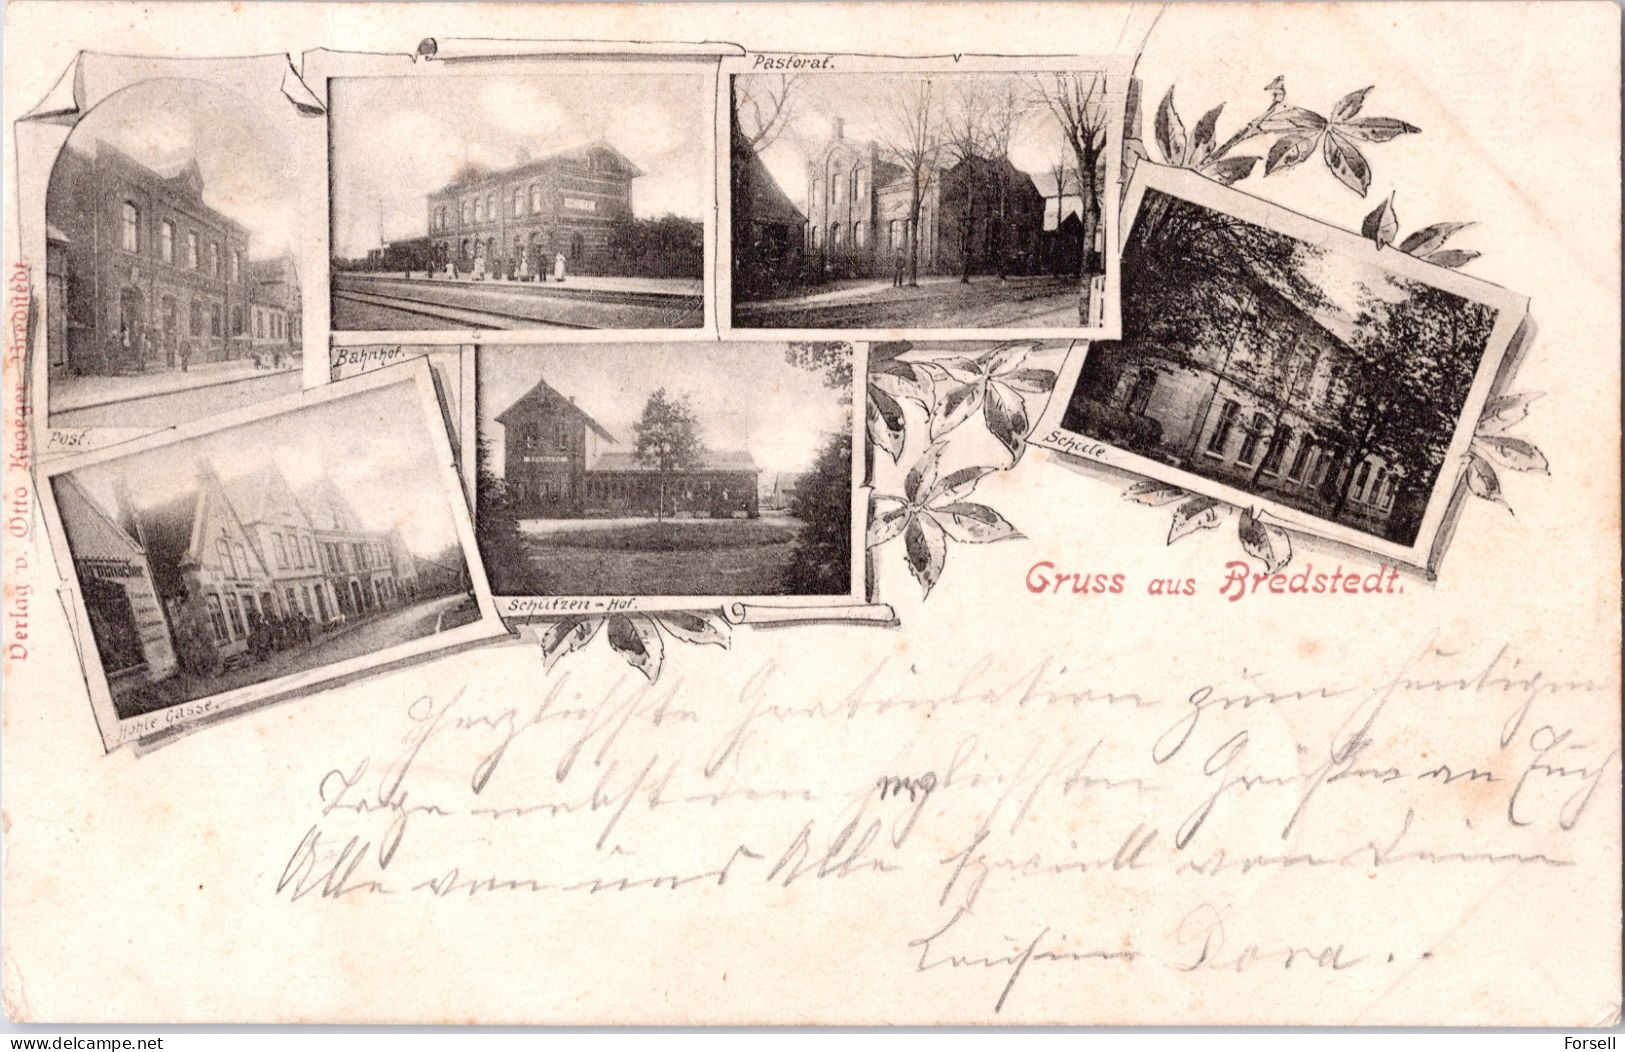 Pastorat.
Bahnhof.
Post.
Schule.
Schützen-Hof.
Hohle Gasse.
Verlag v. Otto Kroeger, Bredstedt.
Gruss aus Bredstedt.
Herzlichste Gratulation zum heutigen
Tage nebst den herzlichsten Grüßen an Euch
Alle von uns Alle speciell von Deine
Cousine Dora..
www.delcampe.net
Forsell